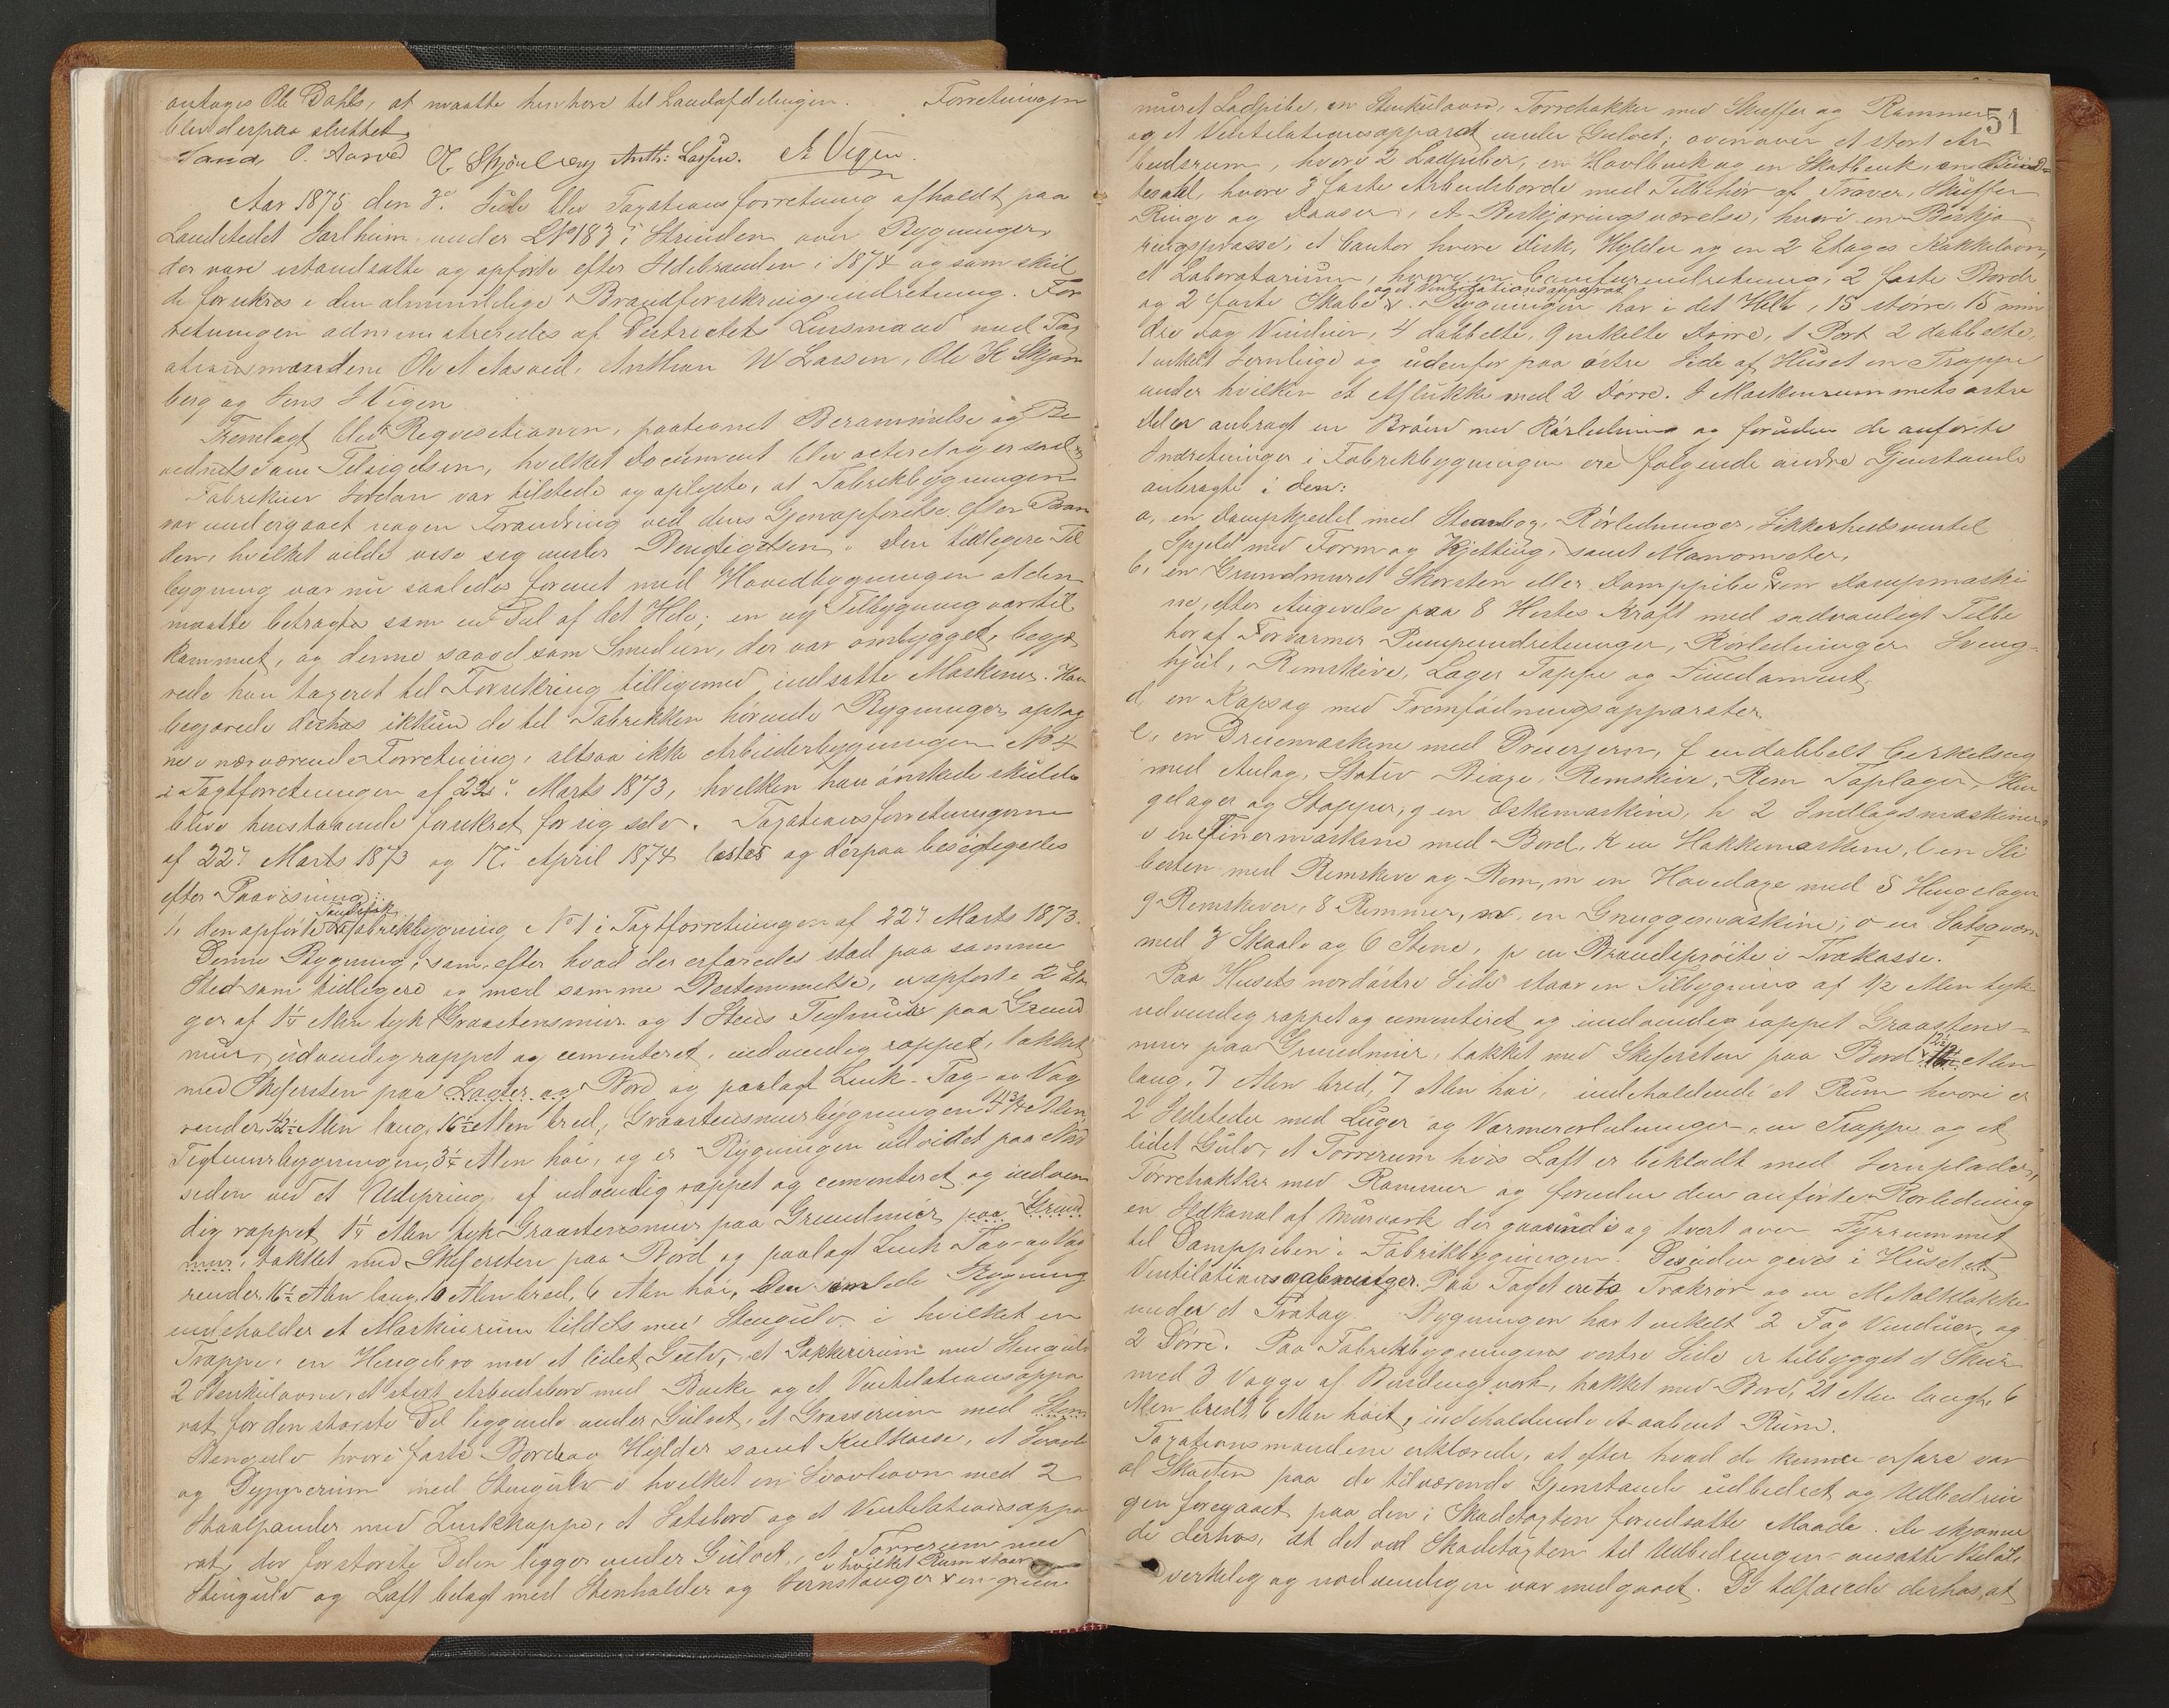 antages Ole Dahls, at maatte henhøre til Landafdelingen. Forretningen
blev derpaa sluttet.
Sand. O. Aasved O K Skjønberg Anth: Larssen. A Vigen.
Aar 1875 den 3d. Juli blev Taxationsforretning afholdt paa
Landstedet Sorlhum under LNo 183 i Strinden over Bygninger
der vare istandsatte og opførte efter Ildebranden i 1874 og som skul
de forsikres i den almindelige Brandforsikringsindretning. For
retningen administreredes af Distriktets Lensmand med Tax
ationsmændene Ole A Aasved, Anthon W Larssen, Ole K Skjøn
berg og Jens A Vigen
Fremlagt blev Requisitionen, paategnet Berammelse og Be
vidnelse om Tilsigelsen, hvilket Document blev acteret og er saal.
Fabrikeier Jordan var tilstede og oplyste, at Fabrikbygningen
var undergaaet nogen Forandring ved dens Gjenopførelse efter Bran
den, hvilket vilde vise sig under Besigtigelsen. Den tidligere Til
bygning var nu saaledes forenet med Hovedbygningen at den
maatte betragtes som en Del af det Hele; en ny Tilbygning var til
kommet, og denne saavel som Smedien, der var ombygget, begjæ
rede han taxeret til Forsikring tilligemed indsatte Maskiner. Han
begjærede derhos ikkun de til Fabrikken hørende Bygninger optag
ne i nærværende Forretning, altsaa ikke Arbeiderbygningen No 4
i Taxtforretningen af 22d. Marts 1873, hvilken han ønskede skulde
blive henstaaende forsikret for sig selv. Taxationsforretningerne
af 22d Marts 1873 og 17d April 1874 læstes og derpaa besigtigedes
efter Paavisning:
Tændstik
1, den opførte fabrikbygning No 1 i Taxtforretningen af 22d Marts 1873.
Denne Bygning, som efter hvad der erfaredes stod paa samme
Sted som tidligere og med samme Bestemmelse, er opført i 2 Eta
ger af 1¼ Alen tyk Graastensmur og 1 Stens Teglmur paa Grund
mur, udvendig rappet og cementeret, indvendig rappet, takket
med Skifersten paa Lægter og Bord og paalagt Zink-Tag- og Vag
render, 42½ Alen lang, 16½ Alen bred, Graastensmurbygningen 4¾ Alen,
Teglmurbygningen 3¼ Alen høi, og er Bygningen udvidet paa Nord
siden ved et Udspring af udvendig rappet og cementeret og indven
dig rappet 1¼ Alen tyk Graastensmur paa Grundmur paa Grund
mur, takket med Skifersten paa Bord og paalagt Zink Tag- og Vag
render, 16½ Alen lang, 10 Alen bred, 6 Alen høi, Den omlede Bygning
indeholder et Maskinrum tildels med Stengulv i hvilket en
Trappe, en Hengebro med et lidet Gulv, et Pakkerirum med Stengulv
2 Stenkulovne, et stort Arbeidsbord med Bænke og et Ventilationsappa
rat for den største Del liggende under Gulvet, et Grasserum med Sten
Stengulv hvori faste Borde og Hylder samt Kulkasse, et Svovle
og Dypperum med Stengulv i hvilket en Svovleovn med 2
Staalpander med Zinkkappe, et Satebord og et Ventilationsappa
rat, der for største Delen ligger under Gulvet, et Tørrerum med
i hvilket Rum staar
Stengulv og Loft belagt med Stenhelder og Jernstænger x en grun
51
muret Ladpibe, en Stenkulovn, Tørrehakker med Skuffer og Rammer
og et Ventilationsapparat under Gulvet; ovenover et stort Ar
beidsrum, hvori 2 Ladpiber, en Høvlbænk og en Skatbænk, en Bund
tesahl, hvori 3 faste Arbeidsborde med Tilbehør af Traver, Skuffer
Ringe og Daaser, et Beskjæringsværelse, hvori en Beskjæ
ringspresse, et Contor hvori Disk, Hylder og en 2 Etages Kakkelovn,
et Laboratorium, hvori en Comfurindretning, 2 faste Borde
og et Ventilationsapparat
og 2 faste Skabe x. Bygningen har i det Hele, 15 større, 15 min
dre Fag Vinduer, 4 dobbelte, 9 enkelte Dørre, 1 Port 2 dobbelte,
1 enkelt Jernluge og udenfor paa østre Side af Huset en Trappe
under hvilken et Aflukke med 2 Dørre. I Maskinrummets østre
Del er anbragt en Brønd med Rørledning og foruden de anførte
Indretninger i Fabrikbygningen ere følgende andre Gjenstande
anbragte i den:
a, en Dampkjedel med Rørledninger, Sikkerhedsventil
Spjeld med Form og Kjetting, samt Manometer,
b, en Grundmuret Skorsten eller Damppibe c en Dampmaski
ne, efter Angivelse paa 8 Hestes Kraft med sædvanligt Tilbe
hør af Forvarmer Pumpeindretninger, Rørledninger Sving-
hjul, Remskive, Lager Tappe og Fundament,
d, en Kapsag med Fremfødningsapparater
e, en Dreiemaskine med Dreierjern, f en dobbelt Cirkelsag
med Anlag, Stativ Biaxe, Remskive, Rem Taplager, Hen
gelager og Stopper, g en Æskemaskine, h 2 Indlægsmaskiner
i en Finermaskine med Bord, k en Hakkemaskine, l en Sli
besten med Remskive og Rem, m en Hovedaxe med 5 Hengelager
9 Remskiver, 8 Remmer, n, en Gnuggemaskine, o en Satsovn
med 3 Skaale og 6 Stene, p en Brandsprøite i Trækasse.
Paa Husets nordøstre Side staar en Tilbygning af 1/2 Alen tyk
udvendig rappet og cementeret og indvendig rappet Graastens-
mur paa Grundmur, takket med Skifersten paa Bord 12½ Alen
lang, 7 Alen bred, 7 Alen høi, indeholdende et Rum hvori er
2 Ildsteder med Luger og Varmerørledninger, en Trappe og et
lidet Gulv, et Tørrerum hvis Loft er beklædt med Jernplader,
Tørrehakker med Rammer og foruden den anførte Rørledning
en Ildkanal af Murværk der gaar indi og tvert over Fyrrummet
til Damppiben i Fabrikbygningen. Desuden gives i Huset et
Ventilationsaabninger. Paa Taget er et Trækrør og en Metalklokke
under et Trætag. Bygningen har 1 enkelt 2 Fag Vinduer, og
2 Dørre. Paa Fabrikbygningens vestre Side er tilbygget et Skur
med 3 Vægge af Bindingsværk, takket med Bord, 21 Alen langt, 6
Alen bredt, 6 Alen høit, indeholdende et aabent Rum.
Taxationsmændene erklærede, at efter hvad de kunne erfare var
al Skaden paa de tilværende Gjenstande udbedret og Udbedrin
gen foregaaet paa den i Skadetaxten forudsatte Maade. De skjønne
de derhos, at det ved Skadetaxten til Udbedringen ansatte Beløb,
verkelig og nødvendigen var medgaaet. De tilføiede derhos, at